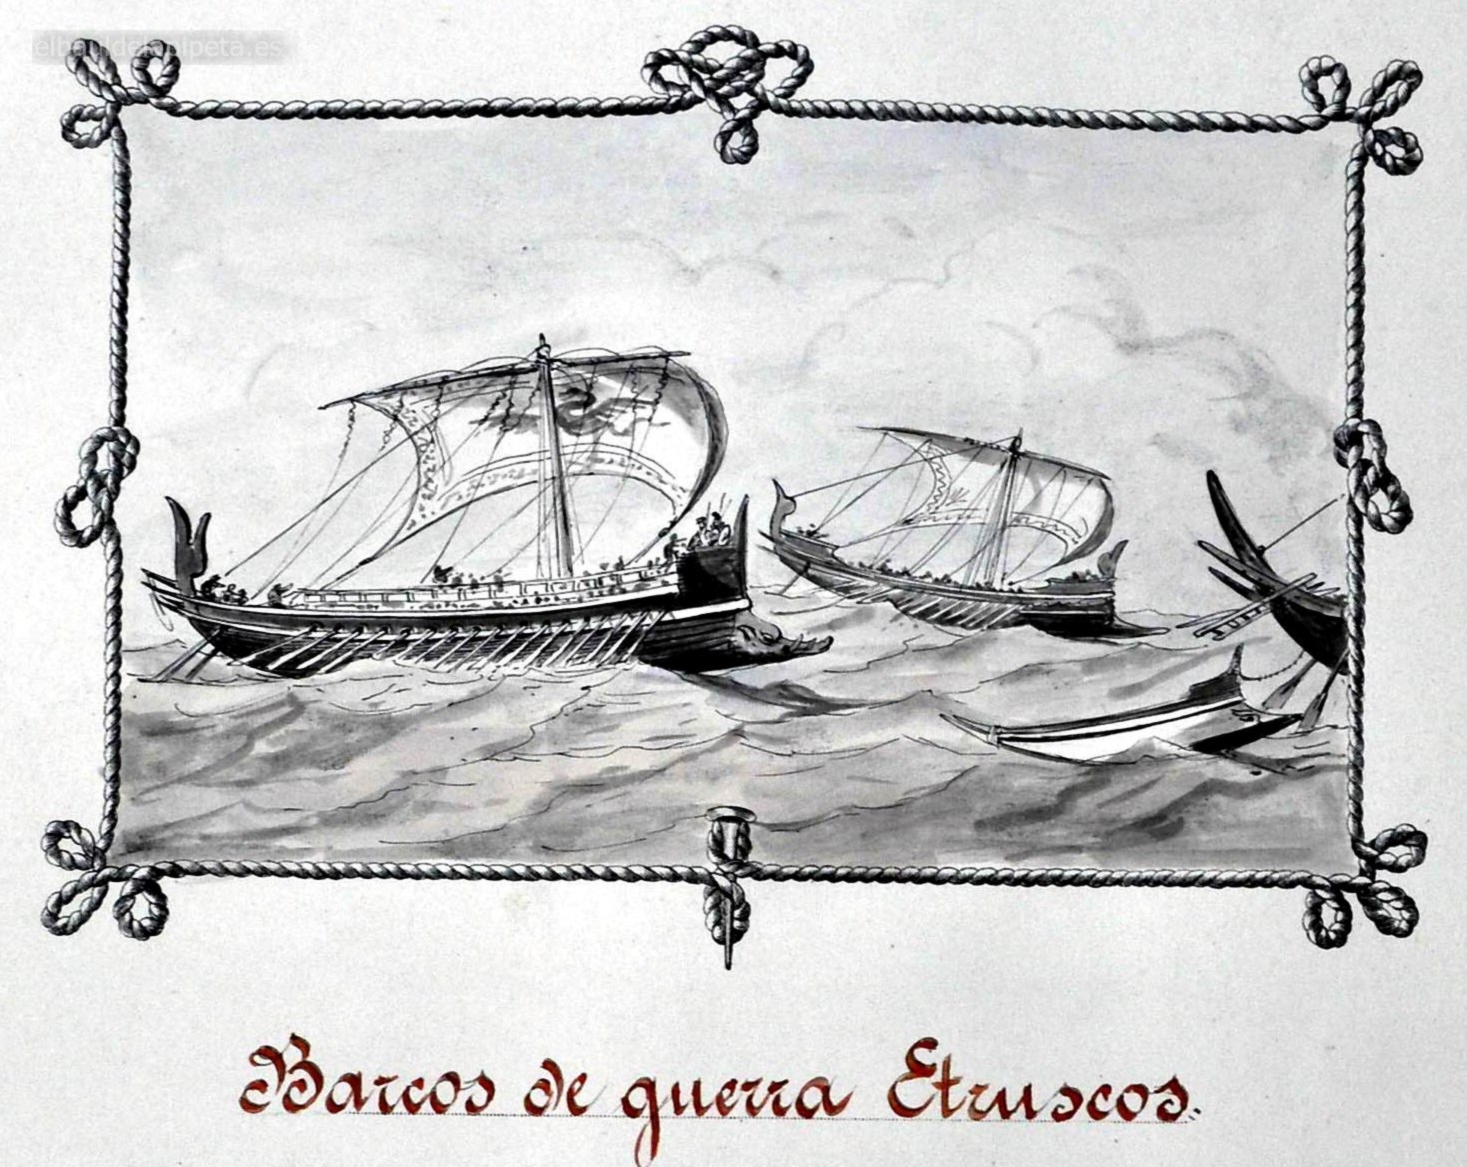 elbauldelapipeta.es
Barcos de guerra Etruscos.